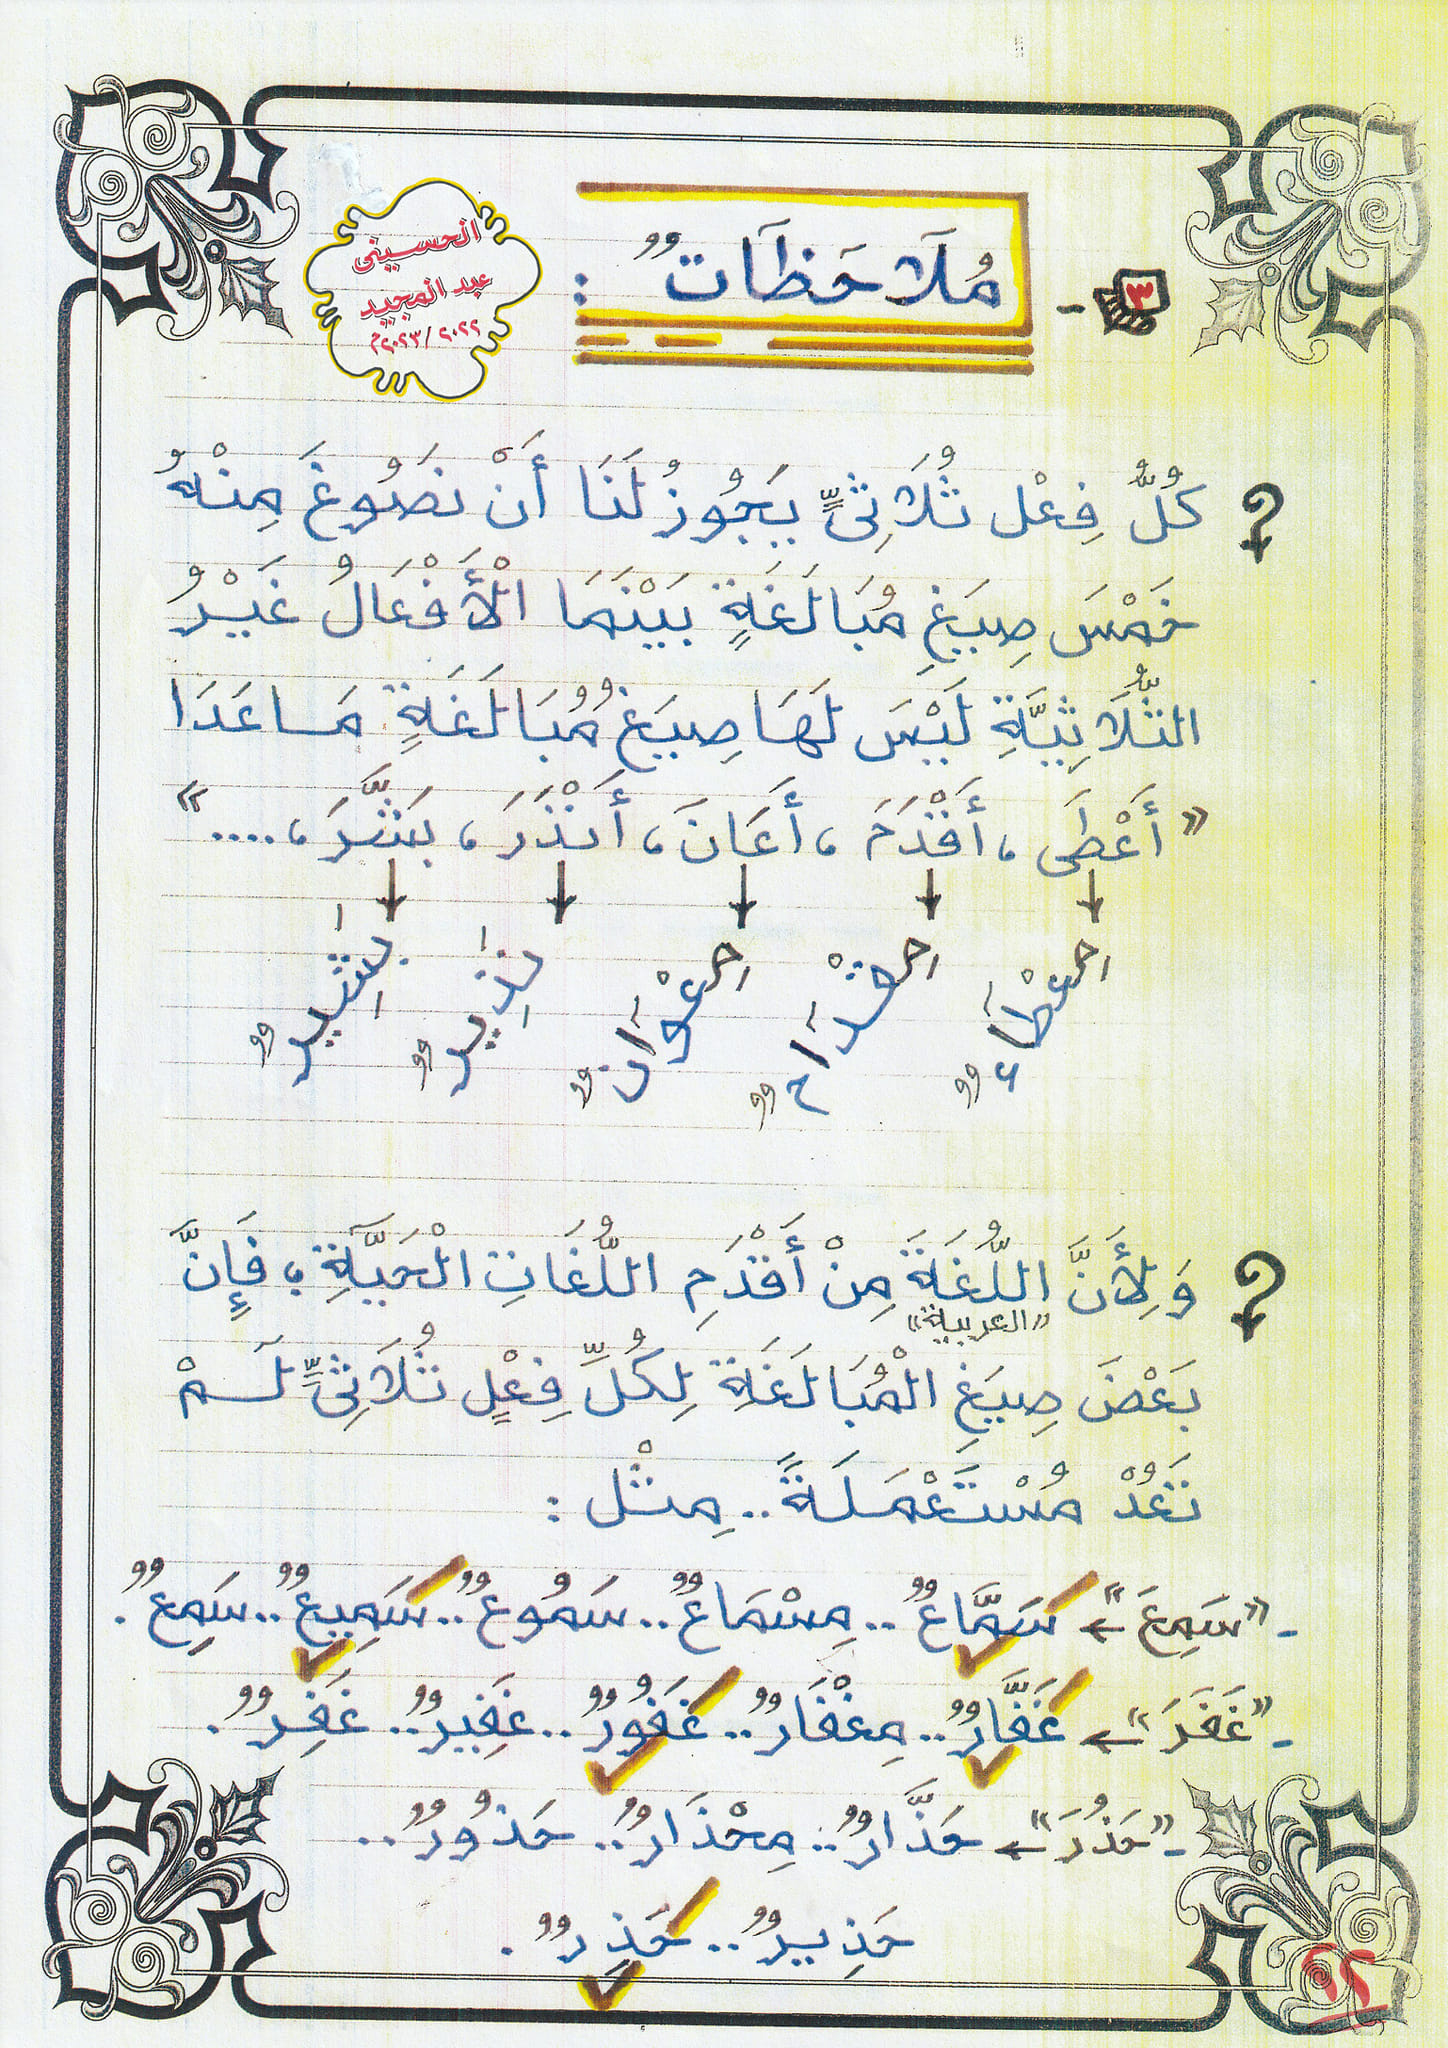 ٣ - مُلَاحَظَاتٌ :
الحسيني
عبد المجيد
٢٠٢٢ / ٢٠٢٣م
كُلُّ فِعْل ثُلَاثِىٍّ يَجُوزُ لَنَا أَنْ نَصُوغَ مِنْهُ
خَمْسَ صِيَغِ مُبَالَغَةٍ بَيْنَمَا الْأَفْعَالُ غَيْرُ
الثُّلَاثِيَّةِ لَيْسَ لَهَا صِيَغُ مُبَالَغَةٍ مَا عَدَا
« أَعْطَى ، أَقْدَمَ ، أَعَانَ ، أَنْذَرَ ، بَشَّرَ ، .... »
مِعْطَاءٌ مِقْدَامٌ مِعْوَانٌ نَذِيرٌ بَشِيرٌ
وَلِأَنَّ اللُّغَةَ مِنْ أَقْدَمِ اللُّغَاتِ الْحَيَّةِ ؛ فَإِنَّ
«العربية»
بَعْضَ صِيَغِ الْمُبَالَغَةِ لِكُلِّ فِعْلٍ ثُلَاثِىٍّ لَمْ
تَعُدْ مُسْتَعْمَلَةً .. مِثْل :
- "سَمِعَ" ← سَمَّاعٌ .. مِسْمَاعٌ .. سَمُوعٌ .. سَمِيعٌ .. سَمِعٌ .
- "غَفَرَ" ← غَفَّارٌ .. مِغْفَارٌ .. غَفُورٌ .. غَفِيرٌ .. غَفِرٌ .
- "حَذُرَ" ← حَذَّارٌ .. مِحْذَارٌ .. حَذُورٌ ..
حَذِيرٌ .. حَذِرٌ .